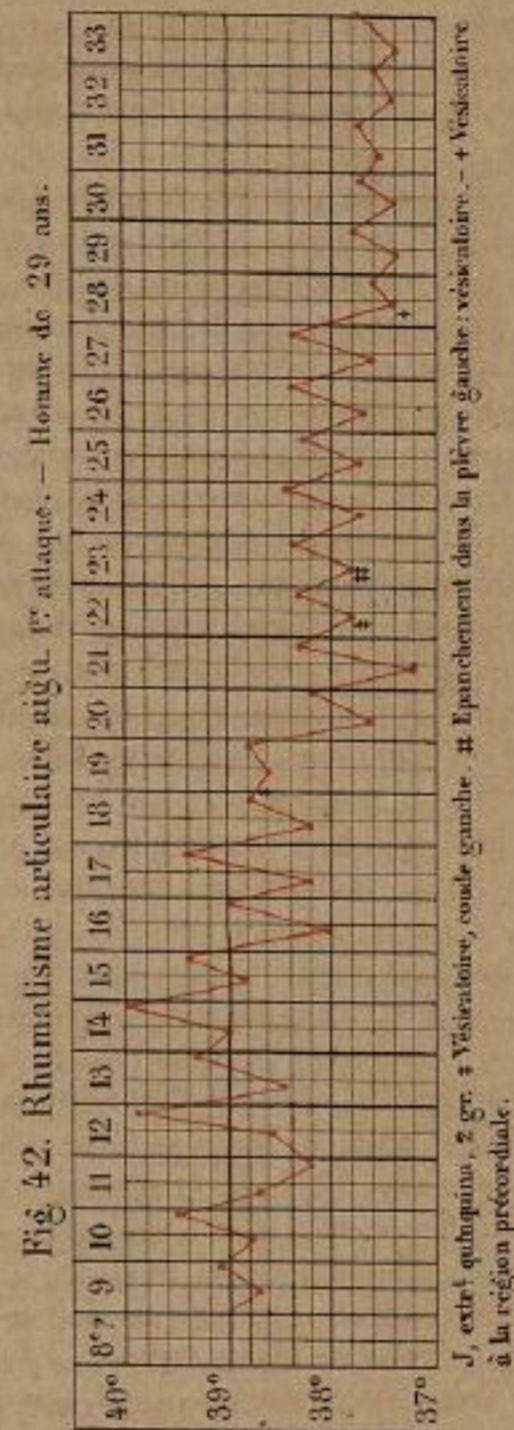 Fig. 42. Rhumatisme articulaire aigu. 1re attaque. — Homme de 29 ans.
8e? 9 10 11 12 13 14 15 16 17 18 19 20 21 22 23 24 25 26 27 28 29 30 31 32 33
40°
39°
38°
37°
J, extrt quinquina, 2 gr. ‡ Vésicatoire, coude gauche. ⌗ Epanchement dans la plèvre gauche : vésicatoire. - + Vésicatoire
à la région précordiale.